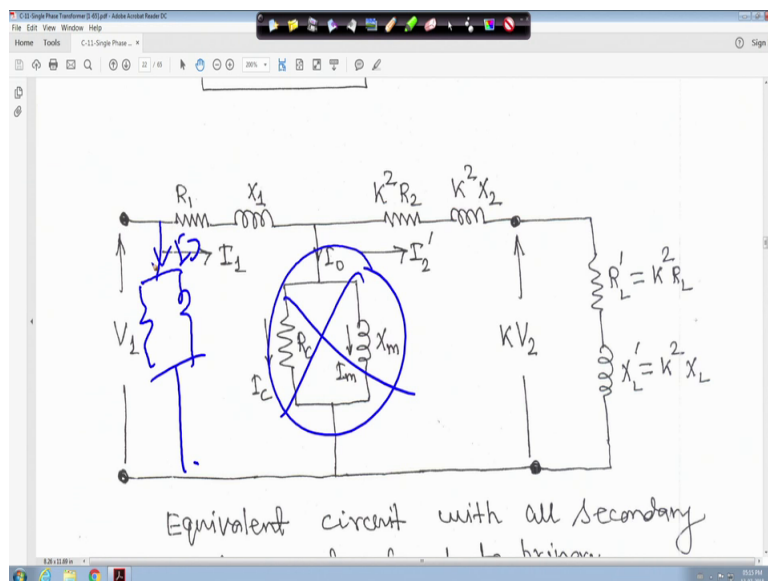 C-11-Single Phase Transformer [1-65].pdf - Adobe Acrobat Reader DC
File Edit View Window Help
Home Tools C-11-Single Phase ... × Sign
22 / 65 200%
R1 X1 K²R2 K²X2
I0 I1 I0 I2'
V1 Rc Xm KV2 RL' = K²RL
Ic Im XL' = K²XL
Equivalent circuit with all secondary
8.26 x 11.69 in
05:15 PM